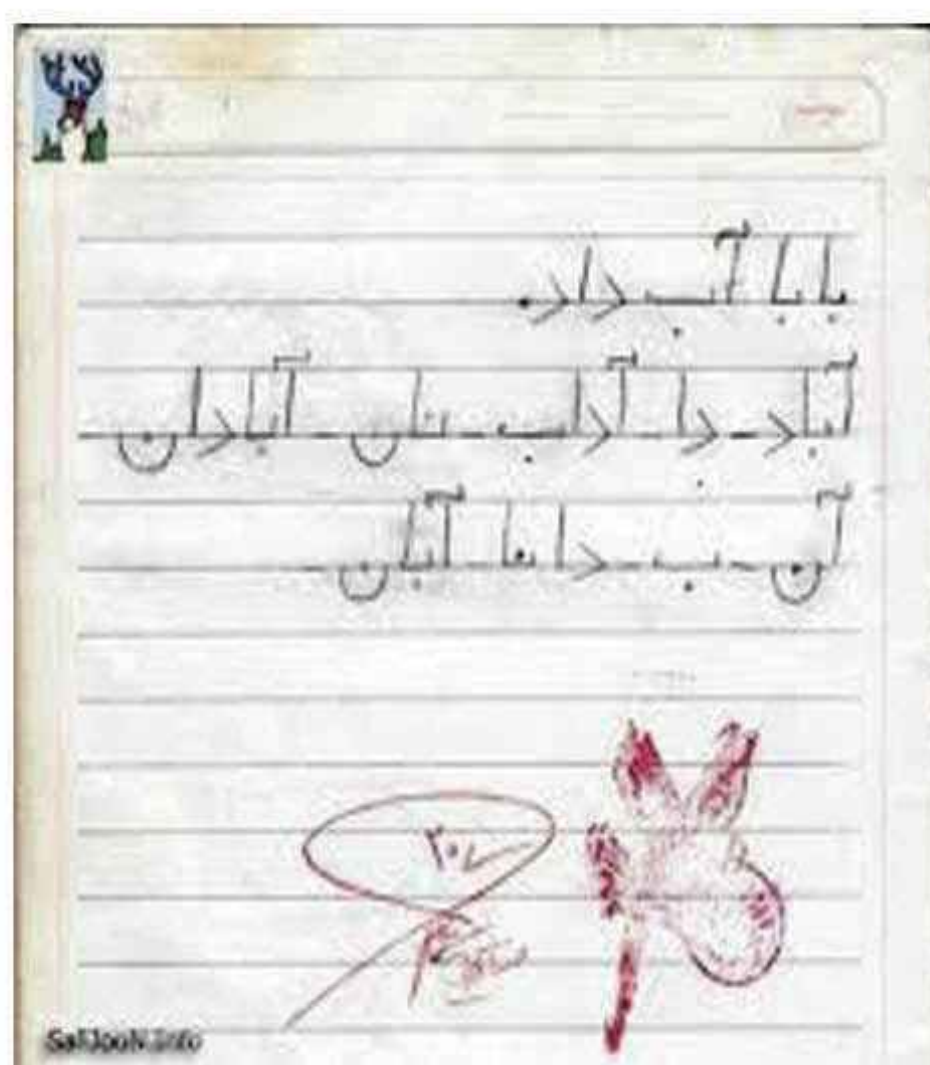 بابا آب داد.
آباد - دا - آداب - نان - آبادان
آن - ب - دانا - آبان -
۲۰
SaliJooN.Info